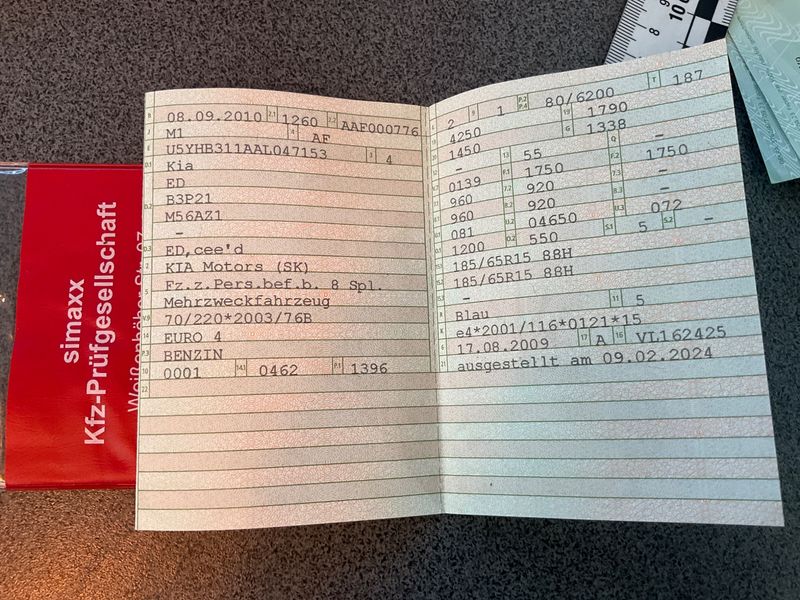 simaxx
Kfz-Prüfgesellschaft
B 08.09.2010 2.1 1260 2.2 AAF000776
J M1 4 AF
E U5YHB311AAL047153 3 4
D.1 Kia
ED
D.2 B3P21
M56AZ1
-
D.3 ED,cee'd
2 KIA Motors (SK)
5 Fz.z.Pers.bef.b. 8 Spl.
Mehrzweckfahrzeug
V.9 70/220*2003/76B
14 EURO 4
P.3 BENZIN
10 0001 14.1 0462 P.1 1396
22
2 9 1 P.2 P.4 80/6200 T 187
4250 19 1790
1450 G 1338
- 13 55 Q -
0139 F.1 1750 F.2 1750
960 7.2 920 7.3 -
960 8.2 920 8.3 -
081 U.2 04650 U.3 072
1200 O.2 550 S.1 5 S.2 -
185/65R15 88H
185/65R15 88H
-
R Blau 11 5
K e4*2001/116*0121*15
6 17.08.2009 17 A 16 VL162425
21 ausgestellt am 09.02.2024
8 9 10